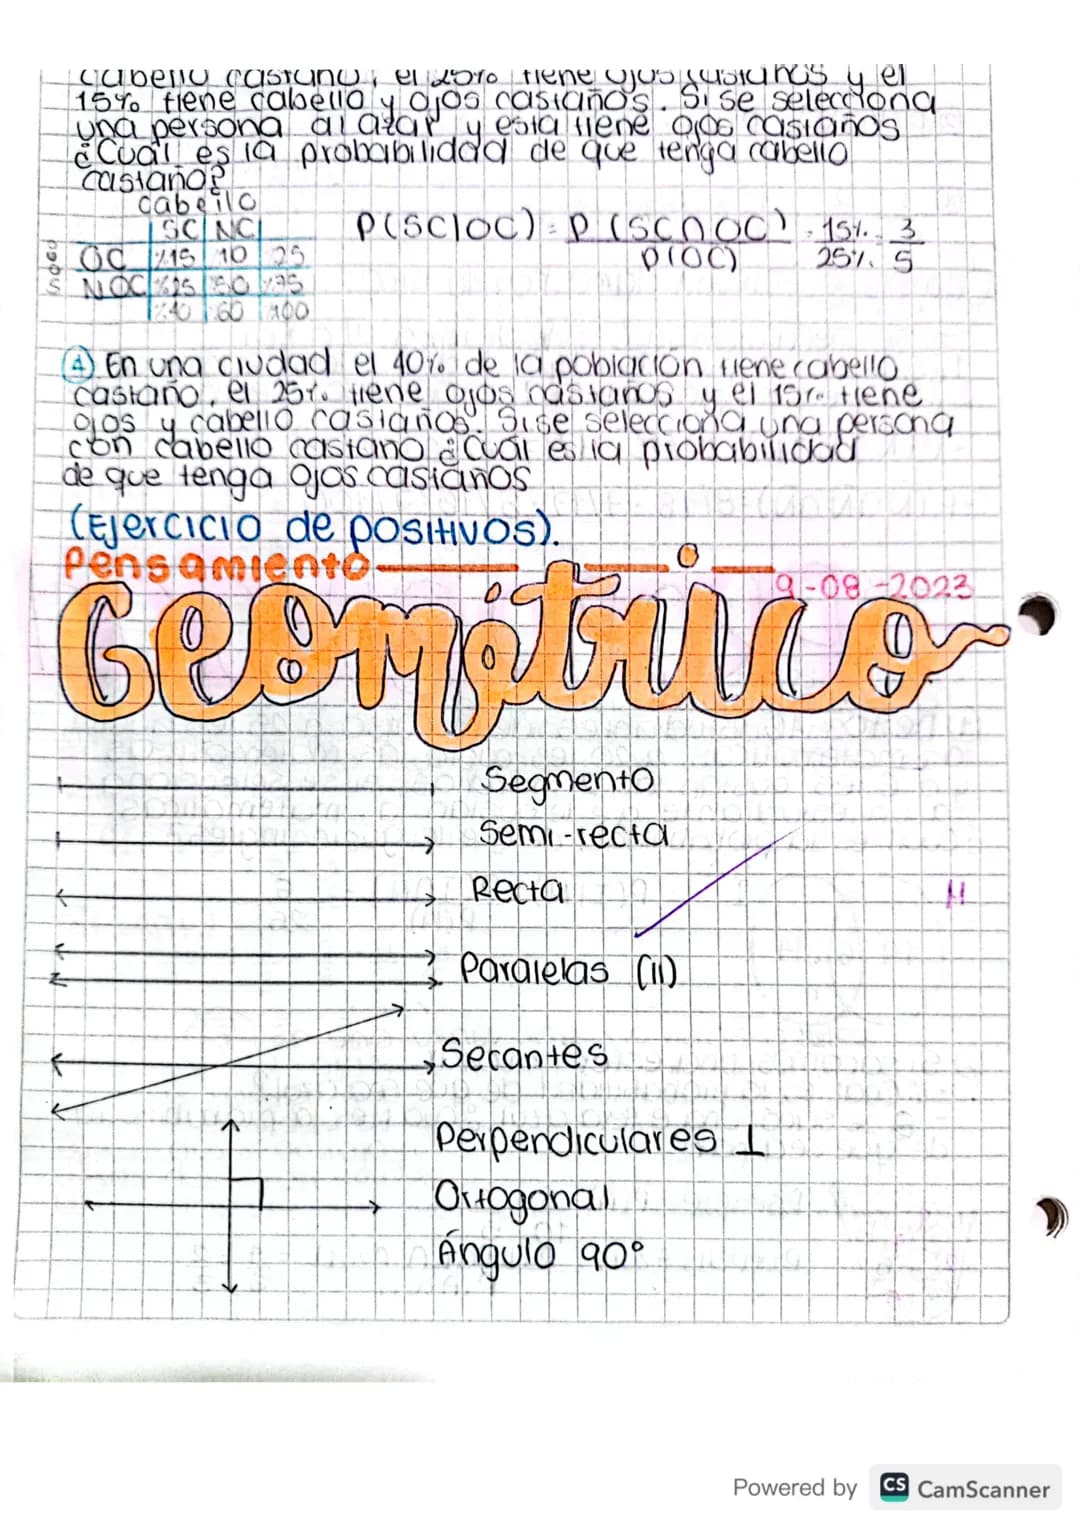 cabello castaño, el 25% tiene ojos castaños y el
15% tiene cabello y ojos castaños. Si se selecciona
una persona al azar y esta tiene ojos castaños
¿Cuál es la probabilidad de que tenga cabello
castaño?
cabello
SC NC
OC %15 10 25
NOC %25 50 %75
%40 60 100
ojos
P(SC|OC) = P(SC∩OC) / P(OC) = 15% / 25% = 3/5
④ En una ciudad el 40% de la población tiene cabello
castaño, el 25% tiene ojos castaños y el 15% tiene
ojos y cabello castaños. Si se selecciona una persona
con cabello castaño ¿Cuál es la probabilidad
de que tenga ojos castaños
(Ejercicio de positivos).
Pensamiento
9-08-2023
Geométrico
Segmento
Semi-recta
Recta
Paralelas (||)
Secantes
Perpendiculares ⊥
Ortogonal
Ángulo 90°
Powered by CS CamScanner